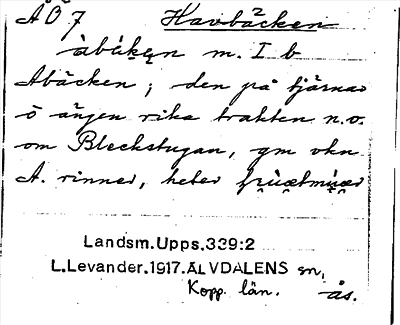 ÄÖ 7 Havbäcken
àbäkęn m. I b
Abäcken; den på tjärnar
o ängen rika trakten n.v.
om Bleckstugan, gm vkn
A. rinner, heter
Landsm.Upps.339:2
L.Levander.1917.ÄLVDALENS sn,
Kopp. län. ås.